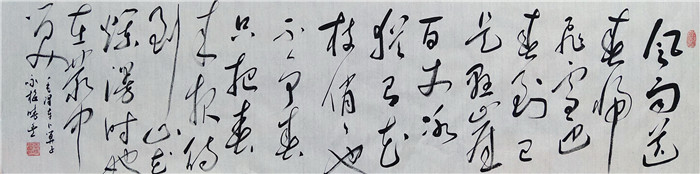 风雨送
春归
飞雪迎
春到已
是悬崖
百丈冰
犹有花
枝俏俏也
不争春
只把春
来报待
到山花
烂漫时她
在丛中
笑
毛泽东卜算子
咏梅